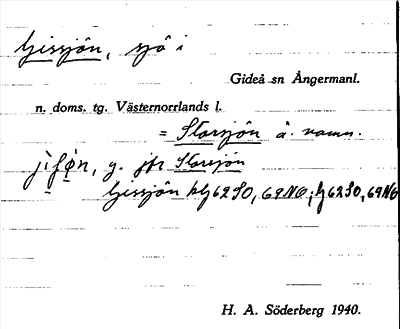 Gissjön, sjö i
Gideå sn Ångermanl.
n. doms. tg. Västernorrlands l.
= Storsjön å. namn.
g. jfr Storsjön
Gissjön hlg 62 SO, 69 NO; g 62 SO, 69 NO
H. A. Söderberg 1940.